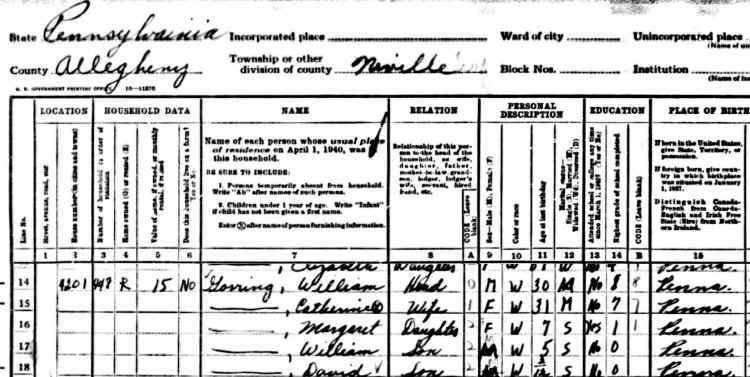 State Pennsylvainia Incorporated place Ward of city Unincorporated place
County Allegheny Township or other division of county Neville Block Nos. Institution
U. S. GOVERNMENT PRINTING OFFICE 16—11576
LOCATION HOUSEHOLD DATA NAME RELATION PERSONAL DESCRIPTION EDUCATION PLACE OF BIRTH
Line No.
Street, avenue, road, etc.
House number (in cities and towns)
Number of household in order of visitation
Home owned (O) or rented (R)
Value of home, if owned, or monthly rental, if rented
Does this household live on a farm? (Yes or No)
Name of each person whose usual place of residence on April 1, 1940, was in this household.
BE SURE TO INCLUDE:
1. Persons temporarily absent from household. Write "Ab" after names of such persons.
2. Children under 1 year of age. Write "Infant" if child has not been given a first name.
Enter ⓧ after name of person furnishing information.
Relationship of this person to the head of the household, as wife, daughter, father, mother-in-law, grandson, lodger, lodger's wife, servant, hired hand, etc.
CODE (Leave blank)
Sex—Male (M), Female (F)
Color or race
Age at last birthday
Marital status—Single (S), Married (M), Widowed (Wd), Divorced (D)
Attended school or college any time since March 1, 1940? (Yes or No)
Highest grade of school completed
CODE (Leave blank)
If born in the United States, give State, Territory, or possession.
If foreign born, give country in which birthplace was situated on January 1, 1937.
Distinguish Canada-French from Canada-English and Irish Free State (Eire) from Northern Ireland.
1 2 3 4 5 6 7 8 A 9 10 11 12 13 14 B 15
Elizabeth Daughter W Penna.
14 4201 448 R 15 No Gorring, William Head 0 M W 30 M No 8 8 Penna.
15 ——, Catherine ⓧ Wife 1 F W 31 M No 7 7 Penna.
16 ——, Margaret Daughter 2 F W 7 S Yes 1 1 Penna.
17 ——, William Son 2 M W 5 S No 0 Penna.
18 ——, David Son 2 M W S No 0 Penna.